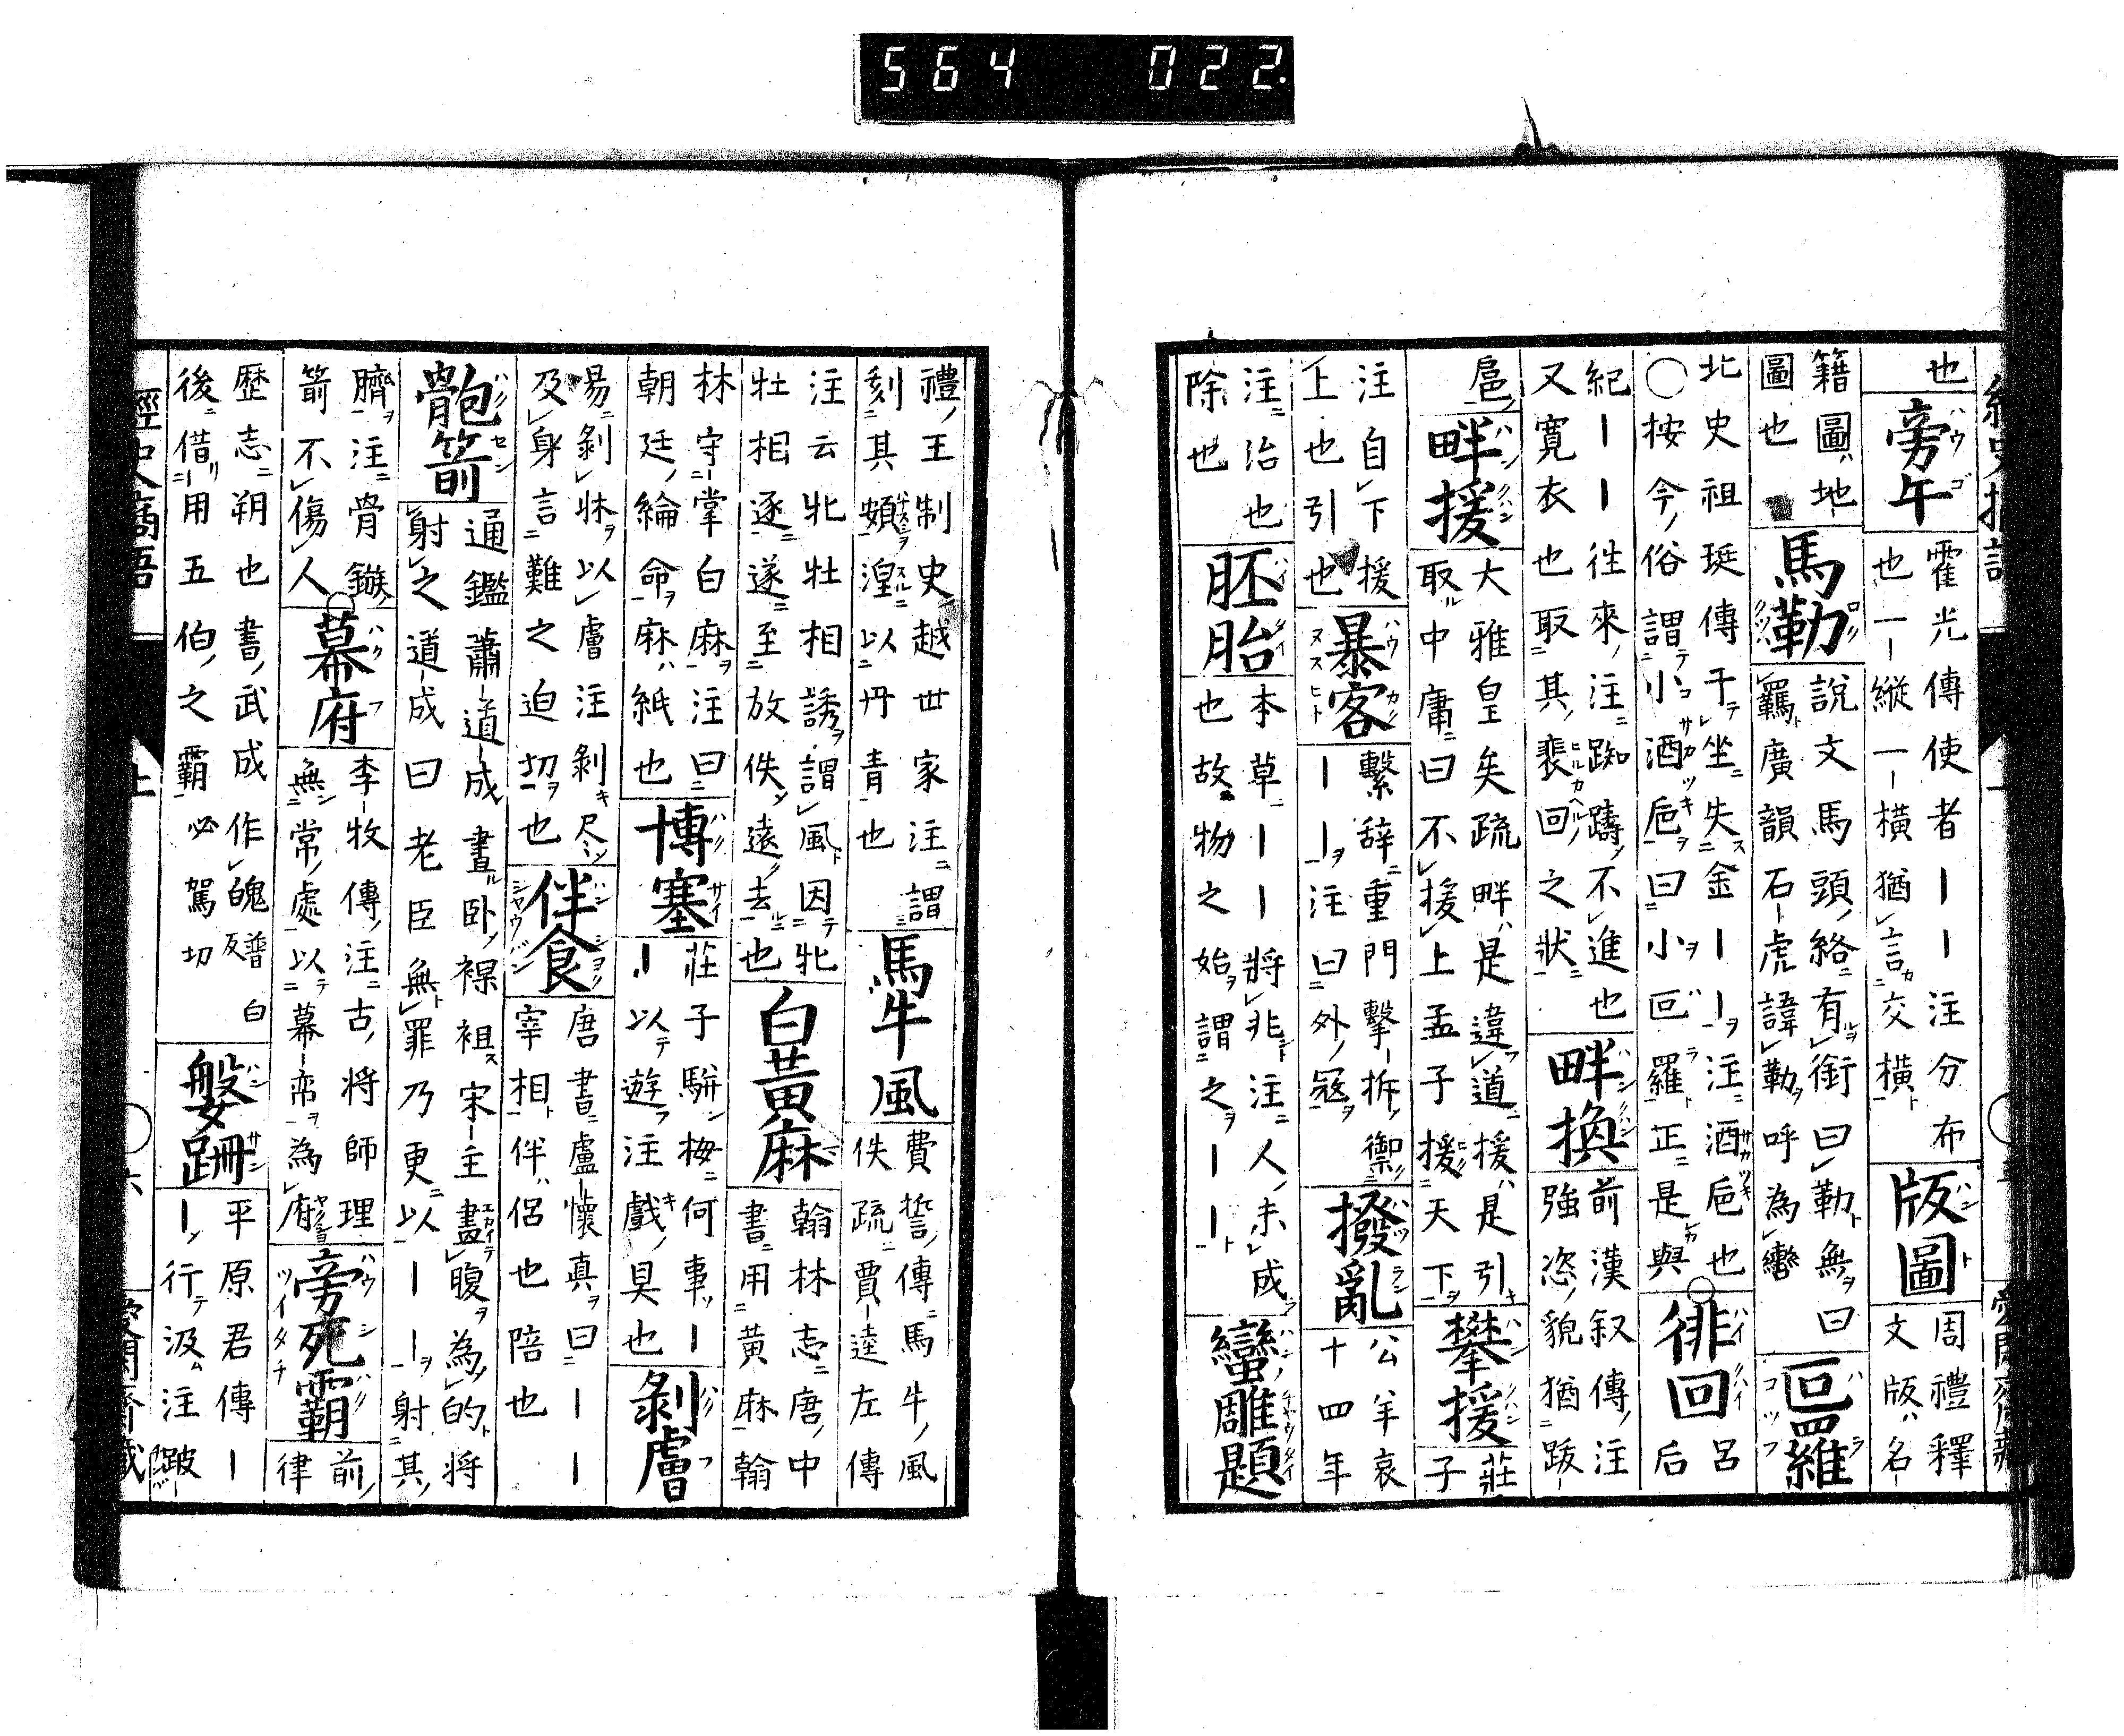 564 022.
也 旁午 霍光傳使者ーー注分布也一ー縦一ー橫猶言交橫 版圖 周禮釋文版名ー
籍圖地ー圖也 馬勒 說文馬頭絡有銜曰勒無曰羈廣韻石ー虎諱勒呼為轡 叵羅
北史祖珽傳于坐失金ーー注酒巵也〇按今俗謂小酒巵曰小叵羅正是與 徘回 呂后
紀ーー往來注踟躊不進也又寬衣也取其裵回之狀 畔換 前漢叙傳注強恣貌猶跋ー
扈 畔援 大雅皇矣疏畔是違道援是引取中庸曰不援上孟子援天下 攀援 莊子
注自下援上也引也 暴客 繫辞重門擊ー拆禦ーー注曰外冦 撥亂 公羊哀十四年
注治也除也 胚胎 本草ーー將兆注人未成也故物之始謂之ーー 蠻雕題
禮王制史越世家注謂刻其頞湼以丹青也 馬牛風 費誓傳馬牛風佚疏賈ー逵左傳
注云牝牡相誘謂風因牝牡相逐遂至放佚遠去也 白黃麻 翰林志唐中書用黃麻翰
林守ー掌白麻注曰朝廷綸命麻紙也 博塞 莊子駢梅何事ーー以遊注戲具也 剝膚
易剝牀以膚注剝尽及身言難之迫切也 伴食 唐書盧懷真曰ーー宰相伴侶也陪也
骲箭 通鑑蕭ー道ー成晝卧裸袒宋ー主畫腹為的将射之道ー成曰老臣無罪乃更以ーー射其
臍注骨鏃箭不傷人 幕府 李ー牧傳注古将師理無常處以幕ー帟為府 旁死霸 前律
歷志朔也書武成作魄普白反後借用五伯之霸必駕切 媻跚 平原君傳ーー行汲注跛